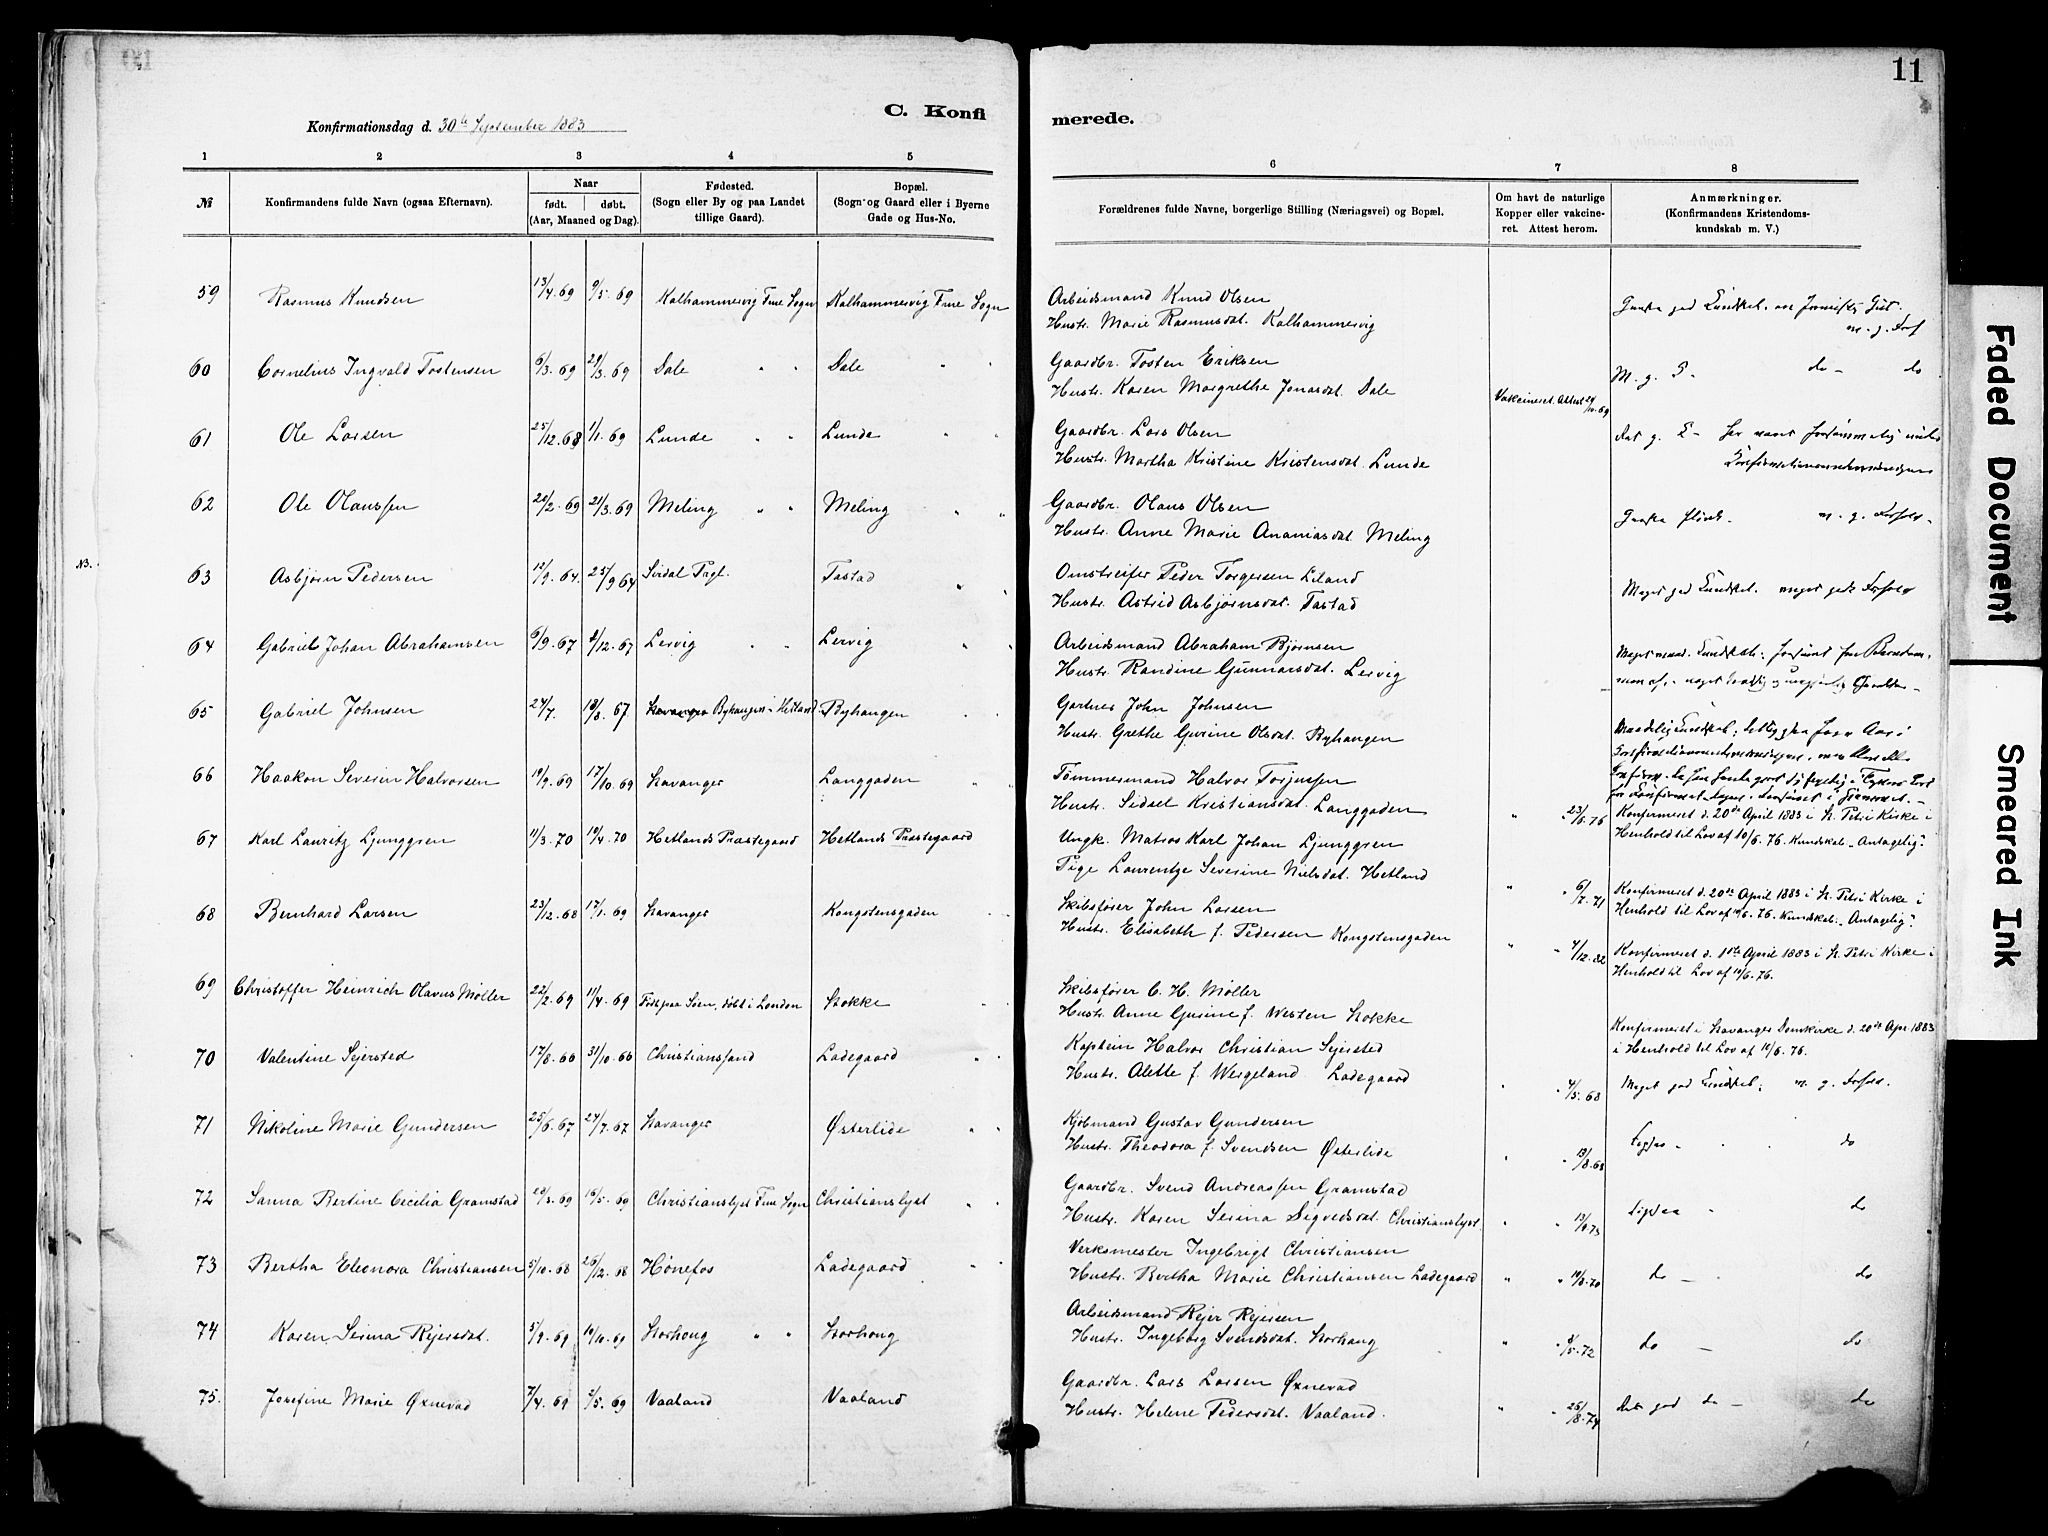 11
C. Konfi
merede.
Konfirmationsdag d. 30te September 1883
1 2 3 4 5 6 7 8
№ Konfirmandens fulde Navn (ogsaa Efternavn). Naar født. døbt. (Aar, Maaned og Dag). Fødested. (Sogn eller By og paa Landet tillige Gaard). Bopæl. (Sogn og Gaard eller i Byerne Gade og Hus-No. Forældrenes fulde Navne, borgerlige Stilling (Næringsvei) og Bopæl. Om havt de naturlige Kopper eller vakcineret. Attest herom. Anmærkninger. (Konfirmandens Kristendomskundskab m. V.)
59 Rasmus Knudsen 13/4.69 9/5.69 Kalhammervig Frue Sogn Kalhammervig Frue Sogn Arbeidsmand Knud Olsen
Hustr. Marie Rasmusdat. Kalhammervig
60 Cornelius Ingvald Tostensen 6/3.69 29/3.69 Dale " " Dale " " Gaardbr. Tosten Eriksen M. g. do do
Hustr. Karen Margrethe Jonasdat. Dale Vakcineret. Attest 24/10.69
61 Ole Larsen 25/12.68 1/1.69 Lunde " " Lunde " " Gaardbr. Lars Olsen
Hustr. Martha Kristine Kristensdat. Lunde
62 Ole Olaussen 20/2.69 21/3.69 Meling " " Meling " " Gaardbr. Olaus Olsen
Hustr. Anne Marie Ananiasdat. Meling
N3.
63 Asbjørn Pedersen 12/9.64. 25/9 64 Sirdal Prgl. Tastad " " Omstreifer Peder Torgersen Liland Meget god Kundskab. meget godt Forhold
Hustr. Astrid Asbjørnsdat. Tastad
64 Gabriel Johan Abrahamsen 6/9.67 8/12.67 Lervig " " Lervig " " Arbeidsmand Abraham Bjørnsen
Hustr. Randine Gunnarsdat. Lervig
65 Gabriel Johnsen 24/7. 18/8.67 Stavanger Byhaugen i Hetland Byhaugen Gartner John Johnsen
Hustr. Grethe Gurine Olsdat. Byhaugen
66 Haakon Severin Halvorsen 19/9.69 17/10.69 Stavanger Langgaden " " Tømmermand Halvor Torjussen
Hustr. Sidsel Kristiansdat. Langgaden " " 23/6.76 Konfirmeret d. 20de April 1883 i St. Petri Kirke i
67 Karl Lauritz Ljunggren 11/3.70 19/4.70 Hetlands Præstegaard Hetlands Præstegaard Ungk. Matros Karl Johan Ljunggren Henhold til Lov af 10/6.76. Kundskab "Antagelig".
Pige Laurentze Severine Nielsdat. Hetland " " 6/7.71 Konfirmeret d. 20de April 1883 i St. Petri Kirke i
68 Bernhard Larsen 23/12.68 17/1.69 Stavanger Kongstensgaden Skibsfører John Larsen Henhold til Lov af 10/6.76. Kundskab "Antagelig".
Hustr. Elisabeth f. Pedersen Kongstensgaden " " 4/12.82 Konfirmeret d. 1ste April 1883 i St. Petri Kirke i
69 Christoffer Heinrich Olavus Møller 22/2.69 11/4.69 Født paa Søen, døbt i London Stokke " Skibsfører C. H. Møller Henhold til Lov af 10/6.76.
Hustr. Anne Gurine f. Westen Stokke Konfirmeret i Stavanger Domkirke d. 20de Apr 1883
70 Valentine Sejersted 17/8.66 31/10.66 Christianssand Ladegaard " " Kaptein Halvor Christian Sejersted i Henhold til Lov af 10/6.76.
Hustr. Alette f. Wergeland Ladegaard " " 4/5.68 Meget god Kundskab; m. g. Forhold.
71 Nikoline Marie Gundersen 25/6.67 27/7.67 Stavanger Østerlide " " Kjøbmand Gustav Gundersen
Hustr. Theodora f. Svendsen Østerlide " " 13/8.68 Ligesaa do
72 Sanna Bertine Cecilia Gramstad 29/3.69 16/5.69 Christianslyst Frue Sogn Christianslyst " Gaardbr. Svend Andreassen Gramstad
Hustr. Karen Serina Sigvedsdat. Christianslyst. " " 13/9.73 Ligesaa " do
73 Bertha Eleonora Christiansen 5/10.68 26/12.68 Hønefos Ladegaard " " Verksmester Ingebrigt Christiansen
Hustr. Bertha Marie Christiansen Ladegaard " " 19/8.70 do do
74 Karen Serina Rejersdat. 5/9.69 10/10.69 Storhoug " " Storhoug Arbeidsmand Rejer Rejersen
Hustr. Ingeborg Svendsdat. Storhaug " " 8/5.72 do do
75. Josefine Marie Øxnevad 7/4.69 2/5.69 Vaaland Vaaland Gaardbr. Lars Larsen Øxnevad
Hustr. Helene Pedersdat. Vaaland. " " 26/8.74 Det god do do
Faded Document
Smeared Ink